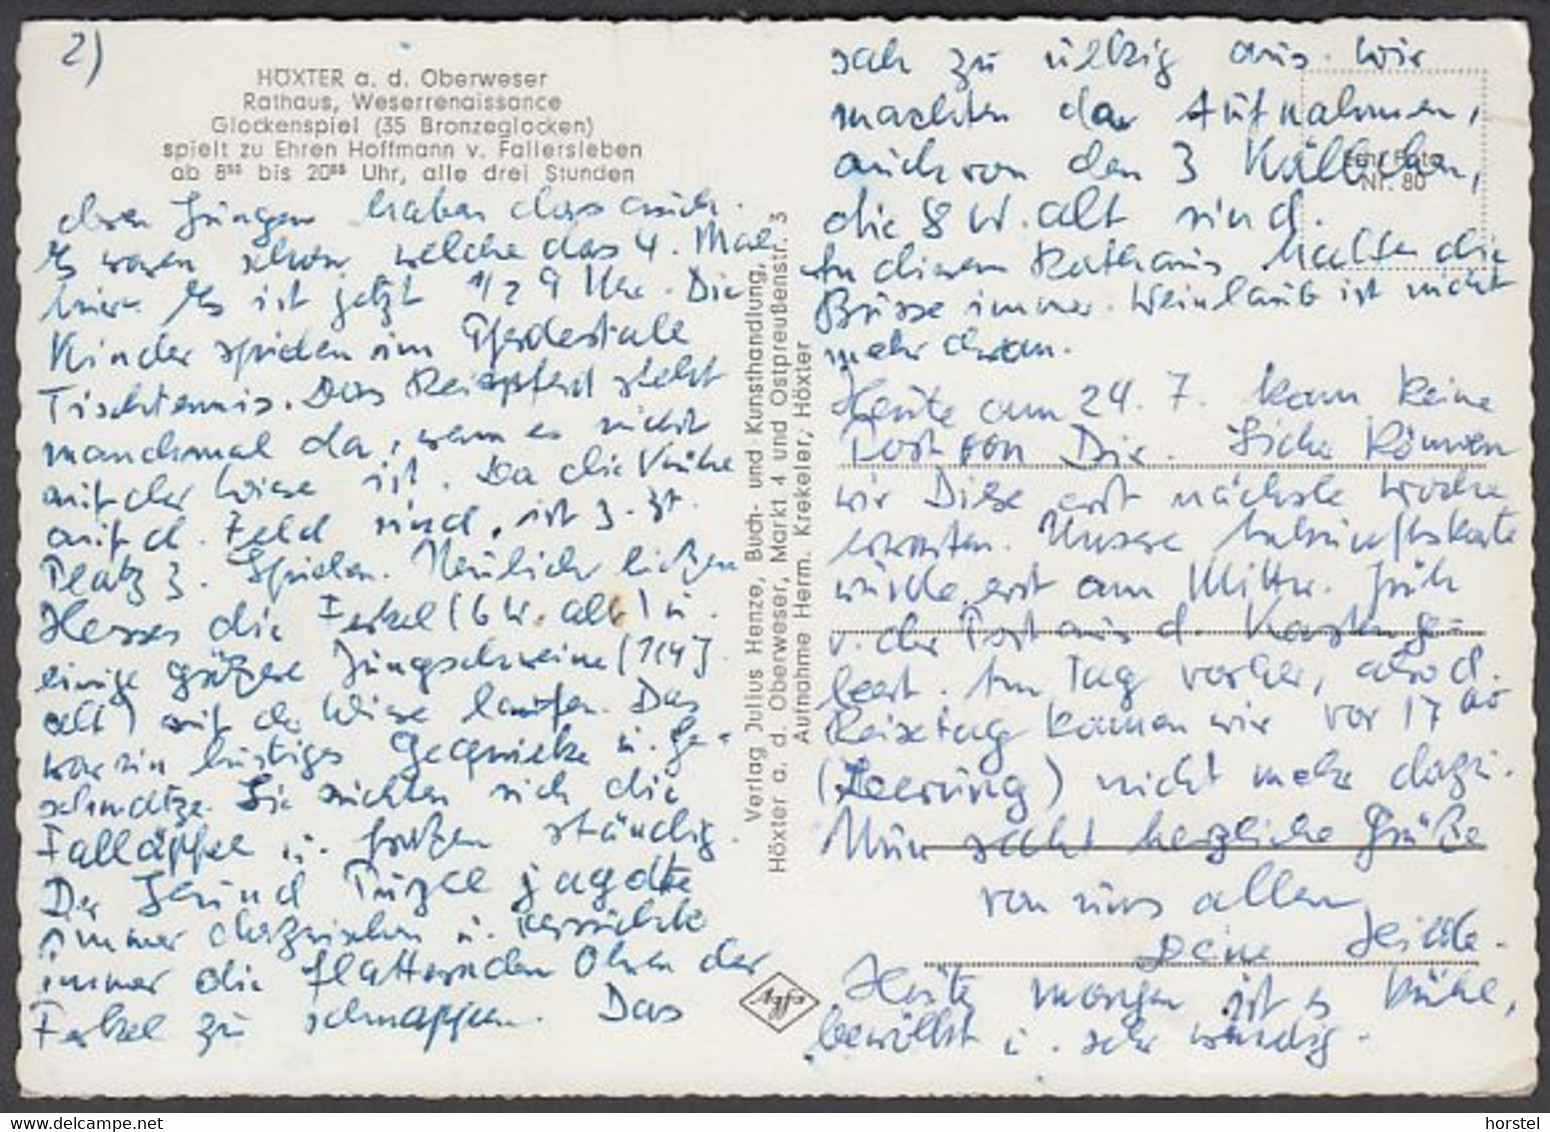 2)
HÖXTER a. d. Oberweser
Rathaus, Weserrenaissance
Glockenspiel (35 Bronzeglocken)
spielt zu Ehren Hoffmann v. Fallersleben
ab 8⁵⁵ bis 20⁵⁵ Uhr, alle drei Stunden
den Jungen haben das auch.
Es waren schon welche das 4. Mal
hier. Es ist jetzt 1/2 9 Uhr. Die
Kinder spielen im Pferdestalle
Tischtennis. Das Reitpferd steht
manchmal da, wenn es nicht
auf der Wiese ist. Da die Kühe
auf d. Feld sind, ist z. Zt.
Platz z. Spielen. Neulich ließen
Hesses die Ferkel (6 W. alt) u.
einige größere Jungschweine (1/4 J.
alt) auf der Wiese laufen. Das
war ein lustiges Gequieke u. Ge-
schmatze. Sie suchten sich die
Falläpfel u. fraßen ständig.
Der Hund Purzel jagdte
immer dazwischen u. versuchte
immer die flatternden Ohren der
Ferkel zu schnappen. Das
Verlag Julius Henze, Buch- und Kunsthandlung,
Höxter a. d. Oberweser, Markt 4 und Ostpreußenstr. 3
Aufnahme Herm. Krekeler, Höxter
sah zu ulkig aus. Wir
machten da Aufnahmen,
auch von den 3 Kälbchen,
die 8 W. alt sind.
Echt Foto
Nr. 80
An diesem Rathaus halten die
Busse immer. Weinlaub ist nicht
mehr dran.
Heute am 24. 7. kam keine
Post von Dir. Sicher können
wir Diese erst nächste Woche
erwarten. Unsere Ankunftskarte
würde erst am Mittw. früh
v. der Post aus d. Kasten ge-
leert. Am Tag vorher, also d.
Reisetag kamen wir vor 17⁰⁰
(Leerung) nicht mehr dazu.
Nun recht herzliche Grüße
von uns allen
Deine
Heute morgen ist es kühl,
bewölkt u. sehr windig.